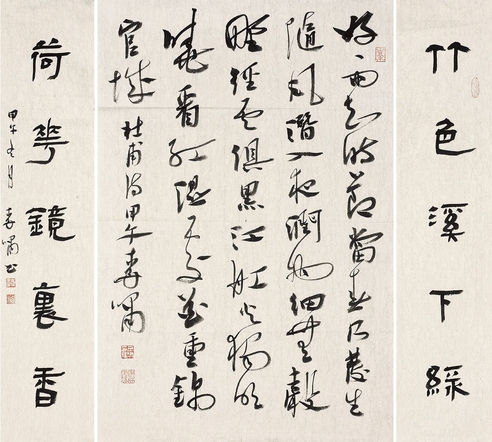 竹色溪下綠
好雨知時節當春乃發生
隨風潛入夜潤物細無聲
野徑雲俱黑江舡火獨明
曉看紅濕處花重錦
官城 杜甫詩甲午春嘯
荷華鏡裏香
甲午 月 春嘯